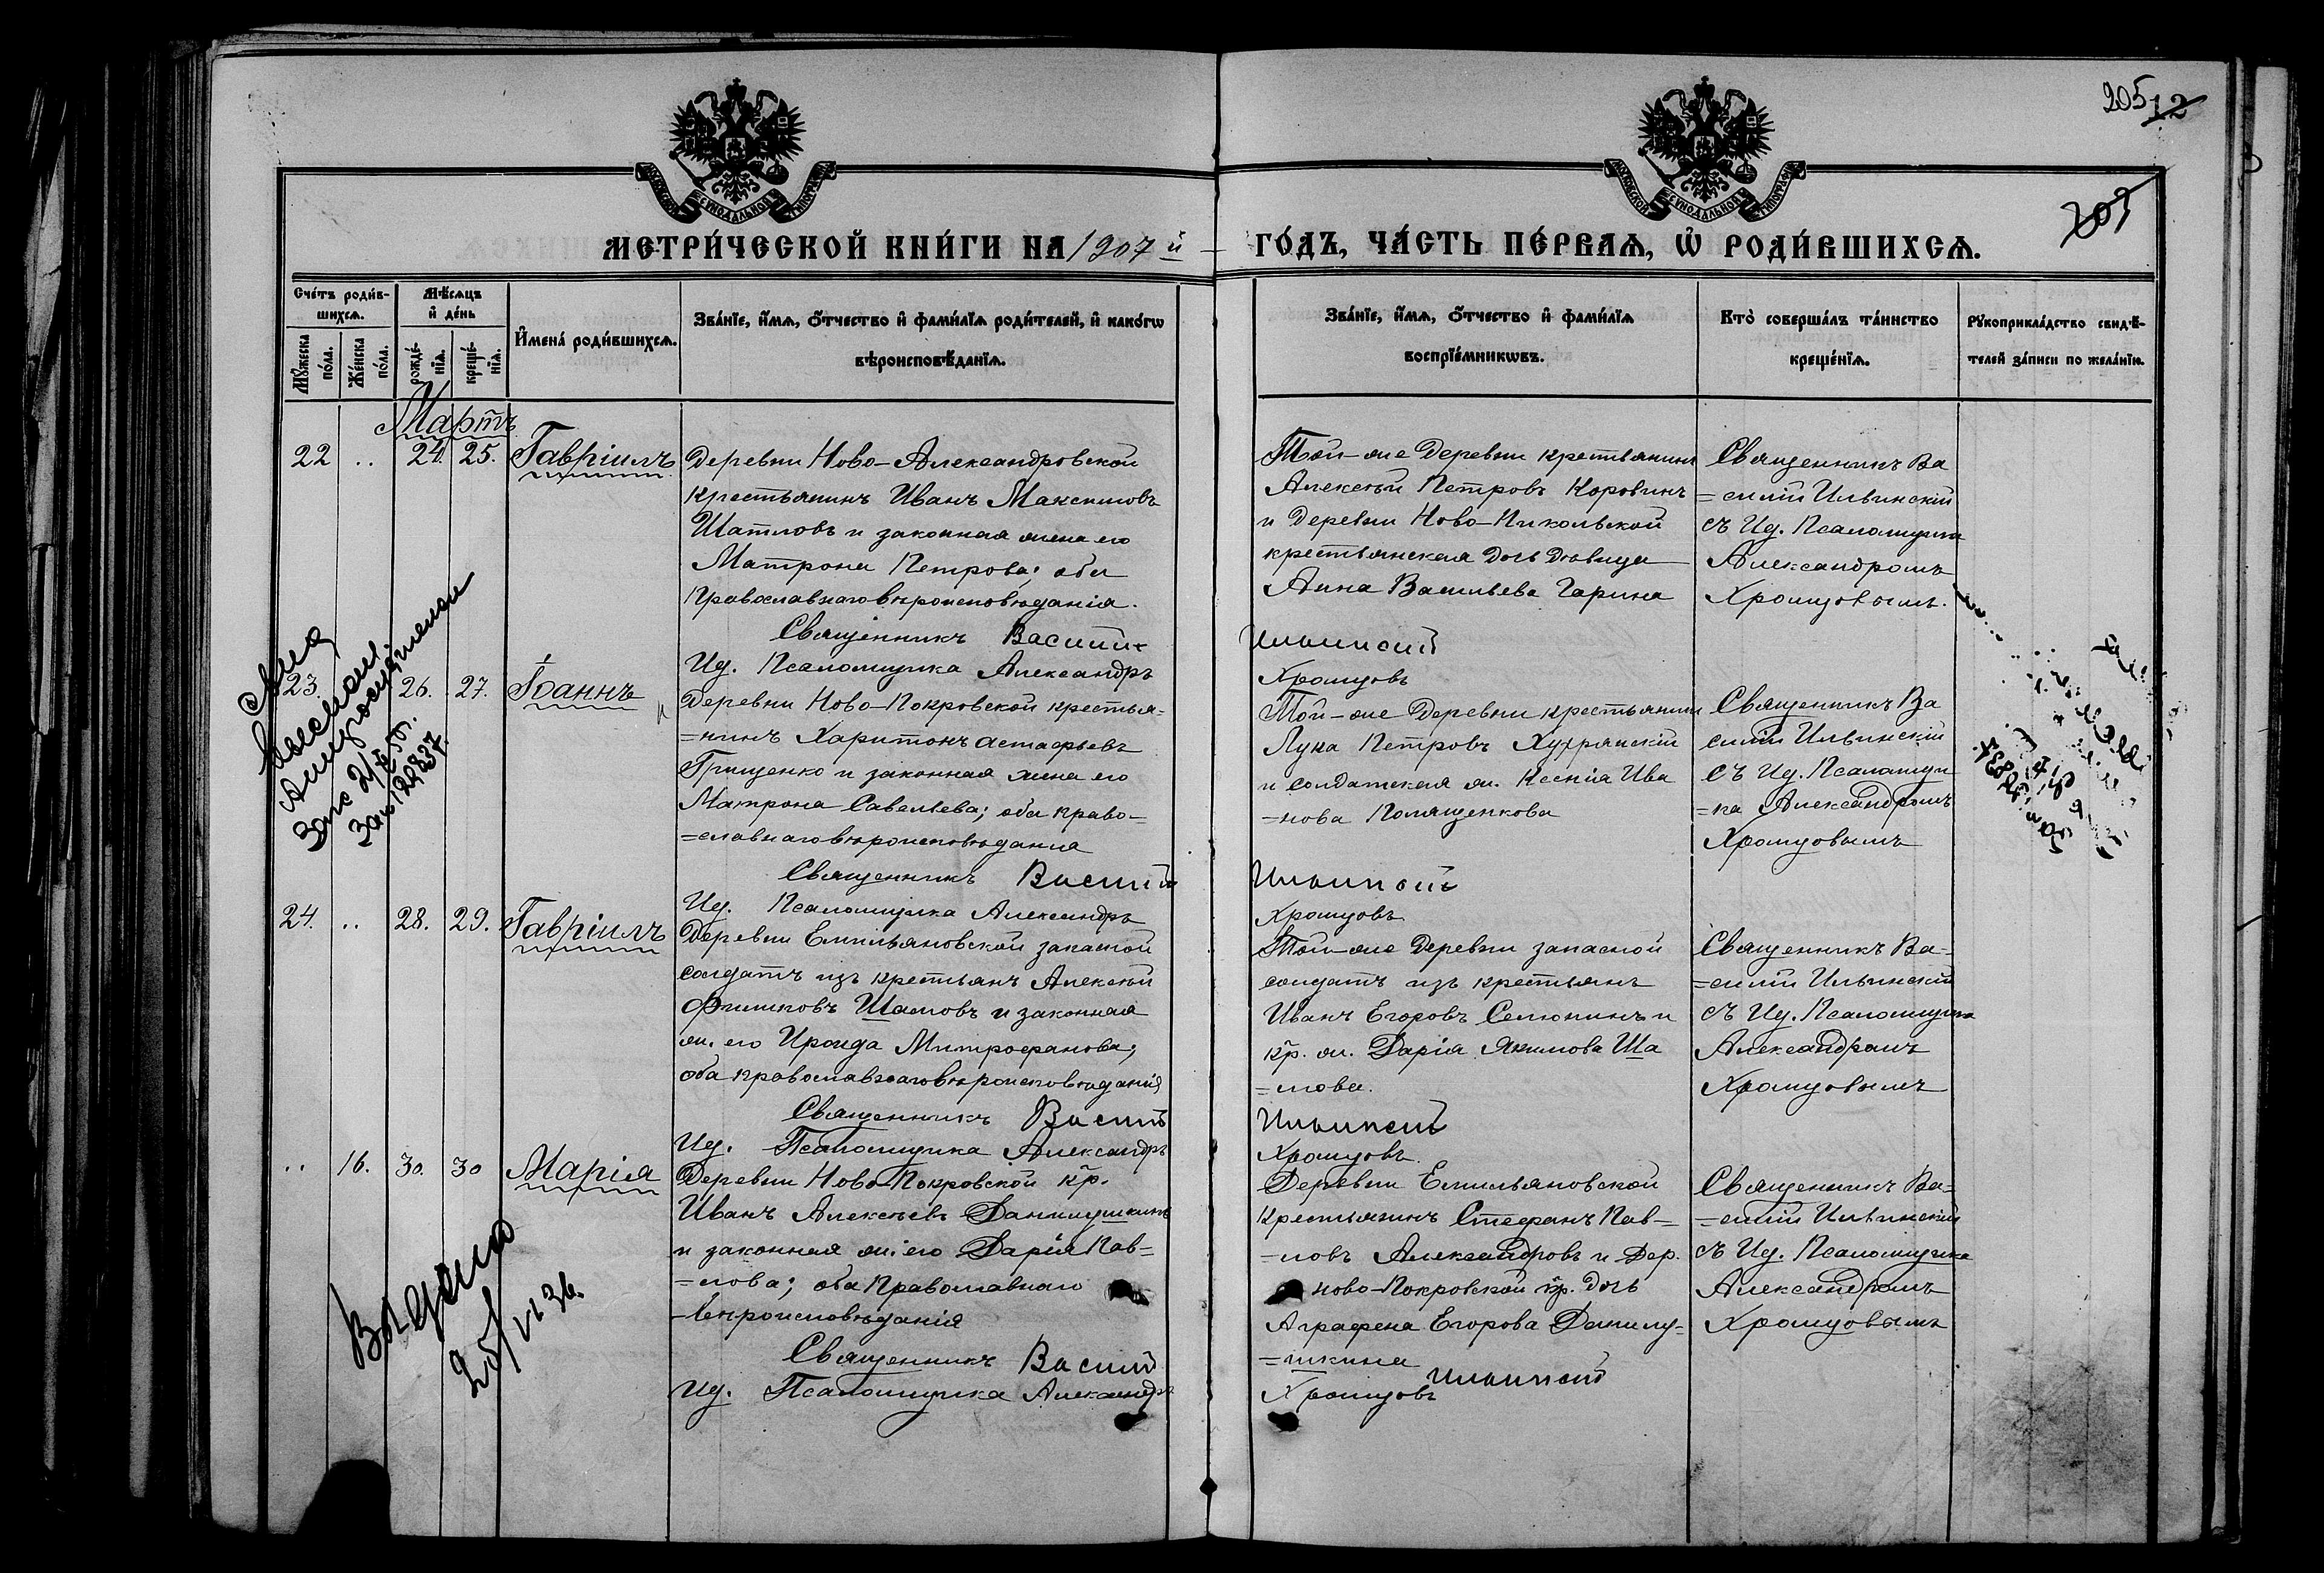 205 12
207
МОСКОВСКОЙ СѴНОДАЛЬНОЙ ТИПОГРАФІИ
МОСКОВСКОЙ СѴНОДАЛЬНОЙ ТИПОГРАФІИ
МЕТРИ́ЧЕСКОЙ КНИ́ГИ НА 1907 й
ГО́ДЪ, ЧА́СТЬ ПЕ́РВАѦ, Ѡ҆ РОДИ́ВШИХСѦ.
Сче́тъ роди́в-
шихсѧ.
Мꙋ́жеска по́ла.
Же́нска по́ла.
Мѣ́сѧцъ
и҆ де́нь
рожде́-
нїѧ.
креще́-
нїѧ.
И҆мена́ роди́вшихсѧ.
Зва́нїе, и҆́мѧ, ѻ҆́тчество и҆ фами́лїѧ роди́телей, и҆ како́гѡ
вѣроисповѣ́данїѧ.
Зва́нїе, и҆́мѧ, ѻ҆́тчество и҆ фами́лїѧ
воспрїе́мникѡвъ.
Кто̀ соверша́лъ та́инство
креще́нїѧ.
Рꙋкоприкла́дство свидѣ́-
телей за́писи по жела́нїю.
Мартъ
22 .. 24. 25. Гавріилъ
Деревни Ново-Александровской
крестьянинъ Иванъ Максимовъ
Шатловъ и законная жена его
Матрона Петрова; оба
Православнаго вѣроисповѣданія.
Священникъ Василій
Ид. Псаломщика Александръ
Той-же Деревни крестьянинъ
Алексѣй Петровъ Коровинъ
и Деревни Ново-Никольской
крестьянская дочь дѣвица
Анна Васильева Гарина
Ильинскій
Хромцовъ
Священникъ Ва
=силій Ильинскій
съ Ид. Псаломщика
Александромъ
Хромцовымъ.
23. 26. 27. Іоаннъ
Деревни Ново-Покровской крестья-
=нинъ Харитонъ Астафьевъ
Грищенко и законная жена его
Матрона Савельева; оба право-
=славнаго вѣроисповѣданія
Священникъ Василій
Ид. Псаломщика Александръ
Той-же Деревни крестьянинъ
Лука Петровъ Хухрянскій
и солдатская ж. Ксенія Ива
=нова Полященкова
Ильинскій
Хромцовъ
Священникъ Ва
силій Ильинскій
съ Ид. Псаломщи
=ка Александромъ
Хромцовымъ
24. .. 28. 29. Гавріилъ
Деревни Емильяновской запасной
солдатъ изъ крестьянъ Алексѣй
Филиповъ Шамовъ и законная
ж. его Ираида Митрофанова;
оба православнаго вѣроисповѣданія
Священникъ Василій
Ид. Псаломщика Александръ
Той-же Деревни запасной
солдатъ изъ крестьянъ
Иванъ Егоровъ Селюнинъ и
кр. ж. Дарія Якимова Ша
=мова.
Ильинскій
Хромцовъ.
Священникъ Ва-
=силій Ильинскій
съ Ид. Псаломщика
Александромъ
Хромцовымъ
.. 16. 30. 30 Марія
Деревни Ново-Покровской кр.
Иванъ Алексѣевъ Данилушкинъ
и законная ж. его Дарія Пав=
=лова; оба Православнаго
-вѣроисповѣданія
Священникъ Василій
Ид. Псаломщика Александръ
Деревни Емильяновской
крестьянинъ Стефанъ Пав-
=ловъ Александровъ и Дер.
ново-Покровской кр. дочь
Аграфена Егорова Данилу-
=шкина
Ильинскій
Хромцовъ
Священникъ Ва=
=силій Ильинскій
съ Ид. Псаломщика
Александромъ
Хромцовымъ
Выдано
25/VI 36.